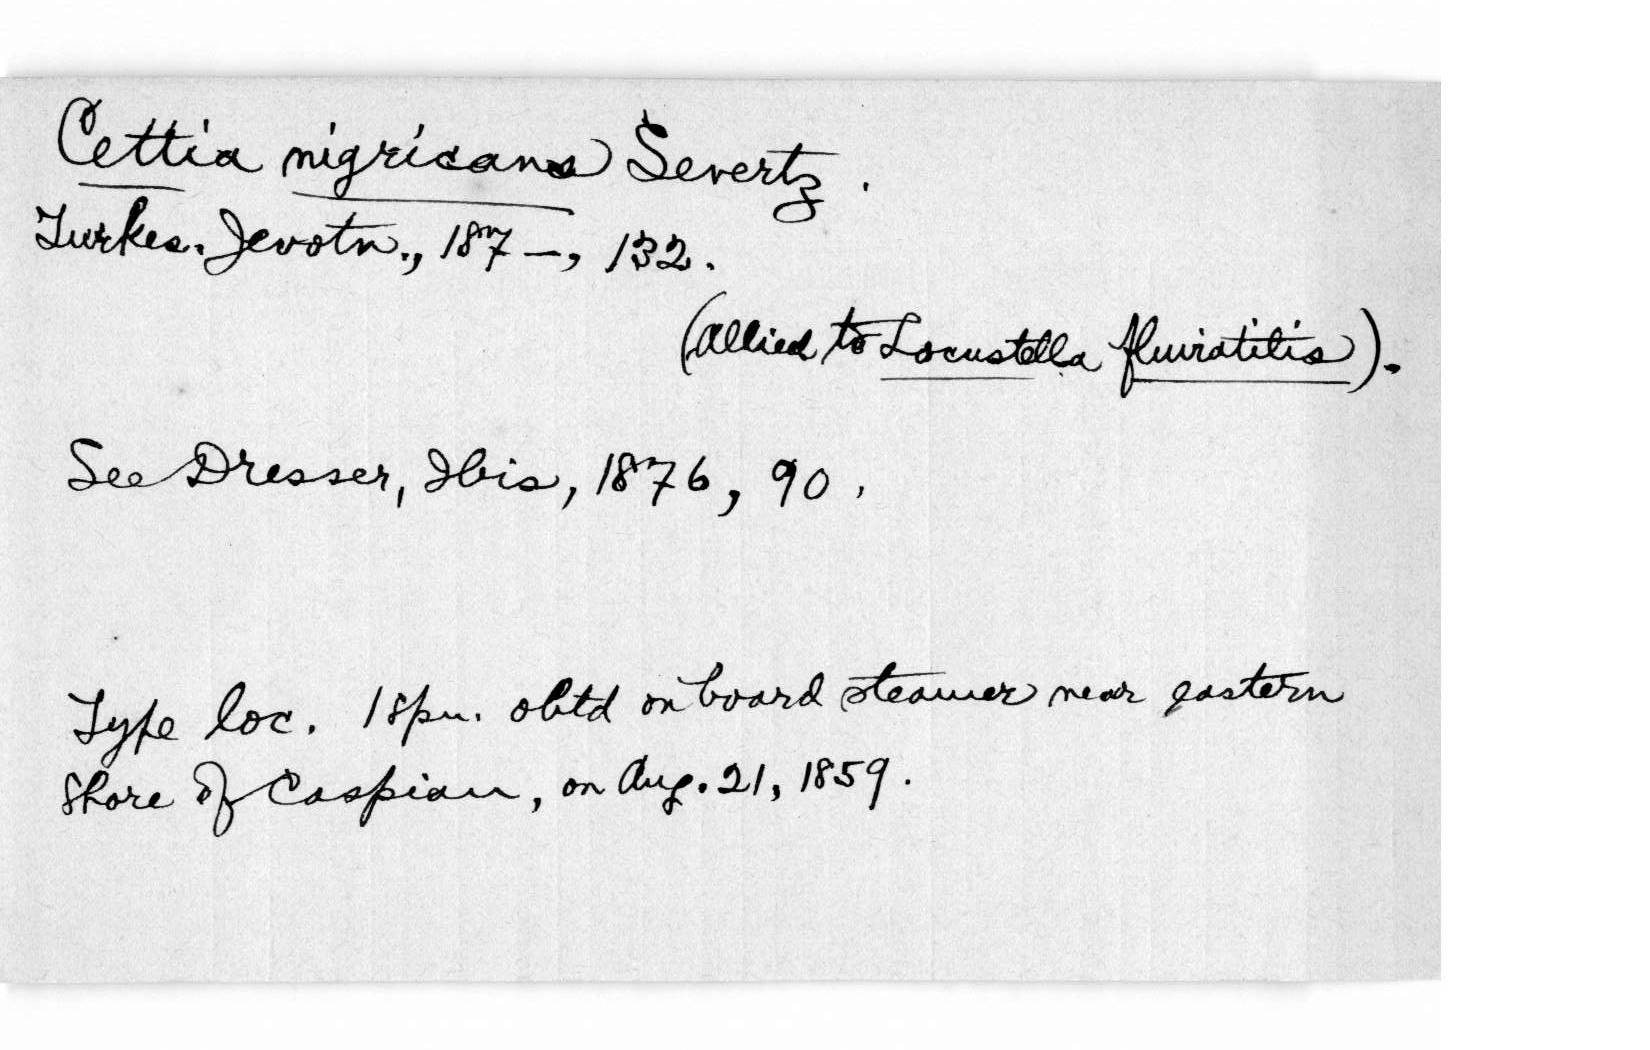 Cettia nigricans Severtz.
Turkes. Jevotn., 187–, 132.
(allied to Locustella fluviatilis).
See Dresser, Ibis, 1876, 90.
Type loc. 1 spn. obtd on board steamer near eastern
shore of Caspian, on Aug. 21, 1859.